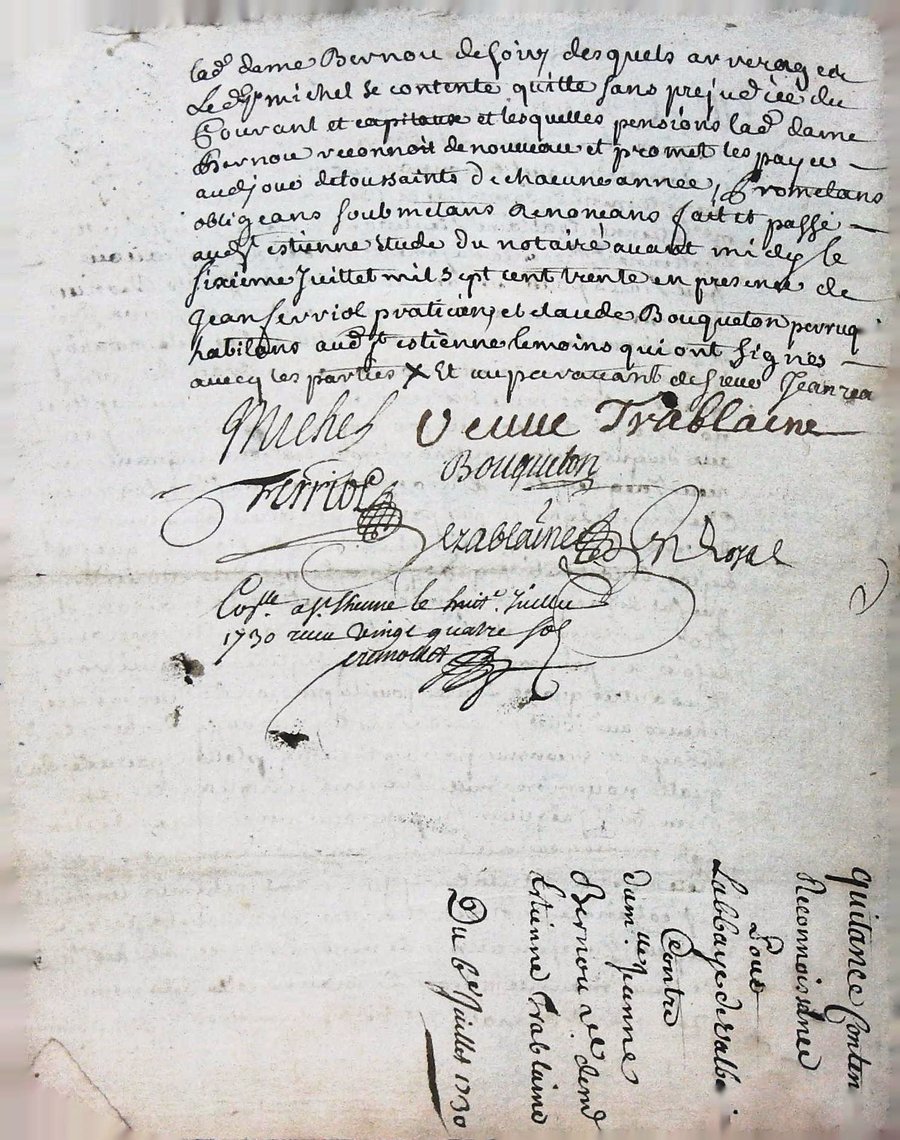 lad.e dame Bernou de soix desquels arrerages
Led. sr michel se contente quitte sans prejudice du
Courant et capitaux et lesquelles pensions lad.e dame
Bernou reconnoit de nouveau et promet les payer
audjour detoussaints de chacune année, Prometans
obligeans soubmetans Renonceans fait et passé
aud st estienne Etude du notaire avant midy le
sixieme Juillet mil sept cent trente en presence de
Jean ferriol praticien et claude Bouqueton perruq
habitans aud st estienne temoins qui ont signes
avecq les parties X Et auparavant de sieur Jean
Michel veuue Trablaine
Bouqueton
Ferriol
trablaine
Coll.e a St. Etienne le huit.e Juillet
1730 receu vingt quatre sols
quitance Conten
Reconnoissance
Pour
Labbaye devalbe
Contre
dam.lle Jeanne
Bernou ve demr
Estienne Trablaine
Du 6e Juillet 1730